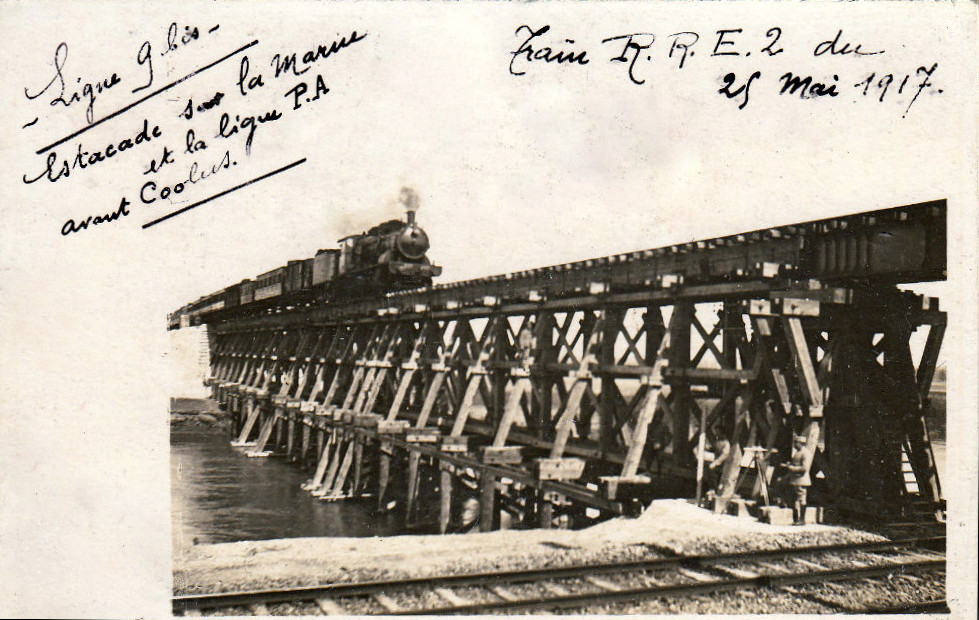 - Ligne 9 bis -
Estacade sur la Marne
et la ligne P.A
avant Coolus.
Train R.R.E.2 du
25 Mai 1917.